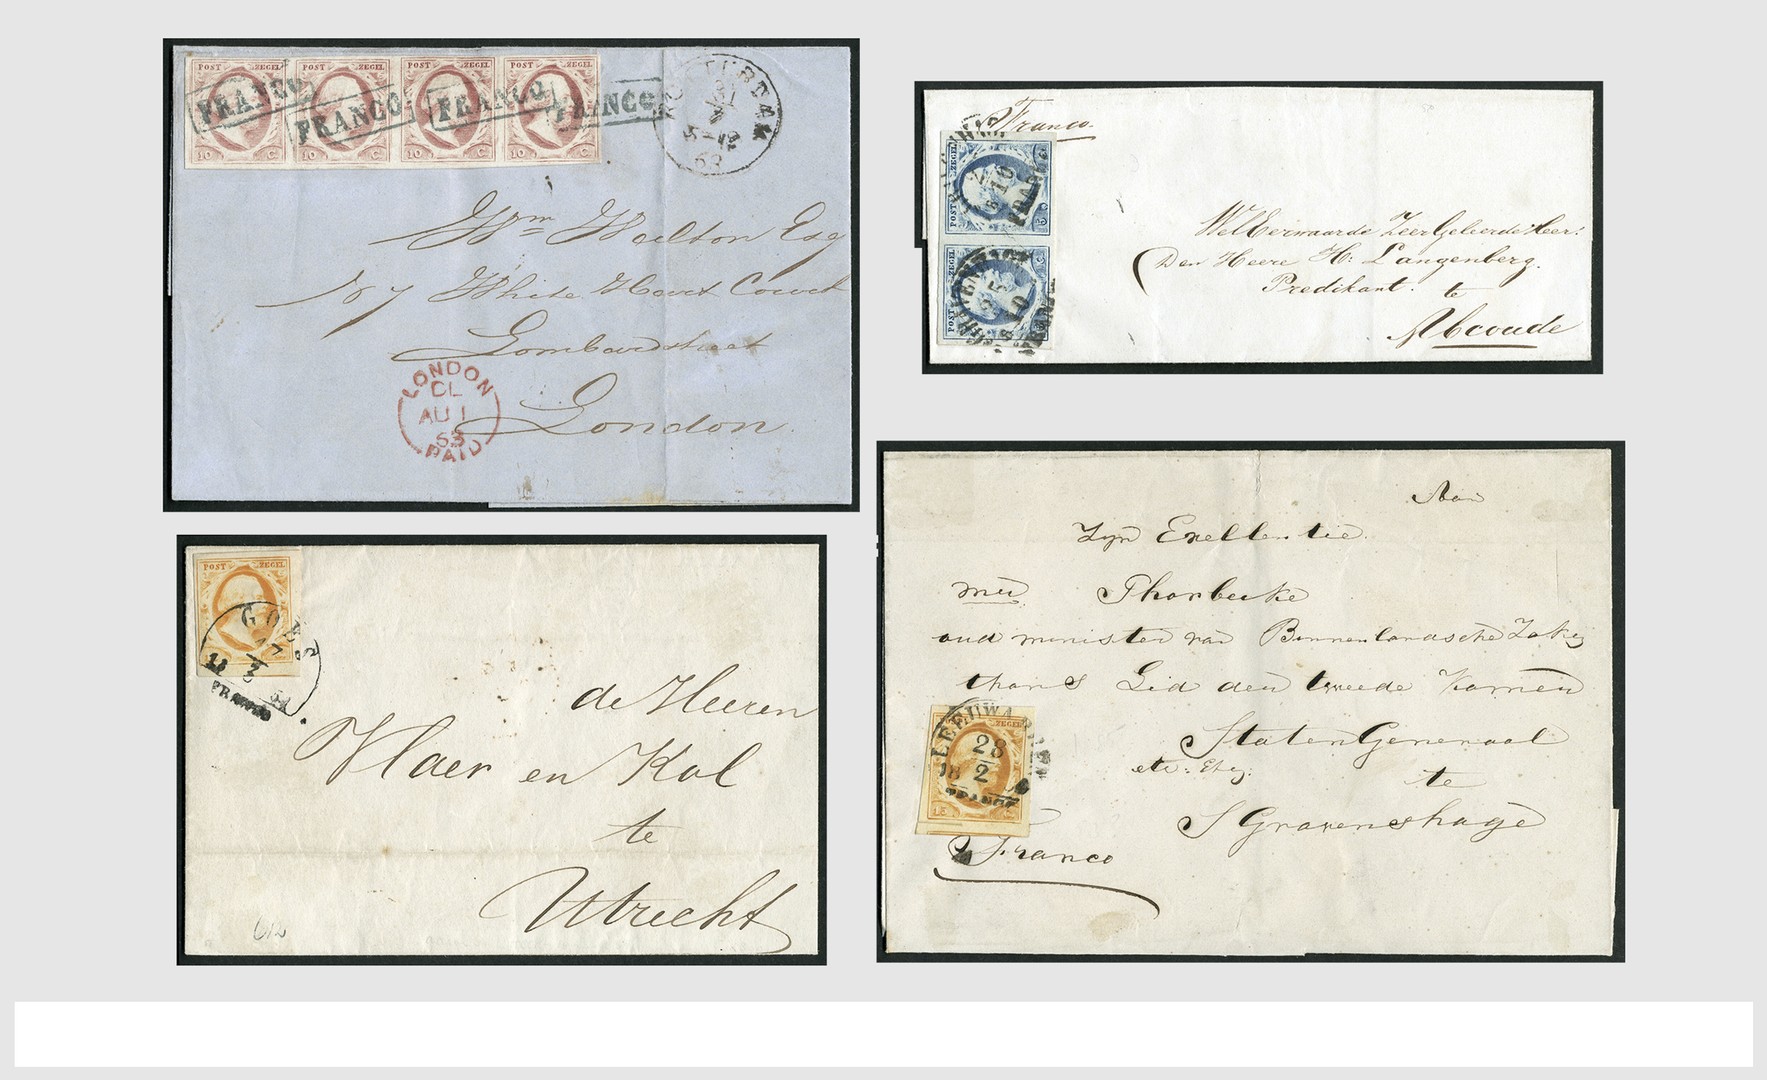 POST ZEGEL POST ZEGEL POST ZEGEL POST ZEGEL
FRANCO FRANCO FRANCO FRANCO
10 C 10 C 10 C 10 C
ROTTERDAM
31
7
5-12
53
Wm Walton Esq
No 7 White Hart Court
Lombardstreet
London
LONDON
DL
AU 1
53
PAID
Franco.
POST ZEGEL
5 C
FRANCO
POST ZEGEL
5 C
'S GRAVENHAGE
25
10
FRANCO
WelEerwaarde ZeerGeleerde Heer:
Den Heere H: Langenberg.
Predikant. te
Abcoude
POST ZEGEL
GOES
FRANCO
de Heeren
Vlaer en Kol
te
Utrecht
Aan
Zyn Exellentie.
mr Thorbecke
oud minister van Binnenlandsche Zake
thans Lid den tweede Kamen
Staten Generaal
etc: Etc:
te
S Gravenshage
ZEGEL
LEEUWARDEN
28
18 2
FRANCO
15 C
Franco